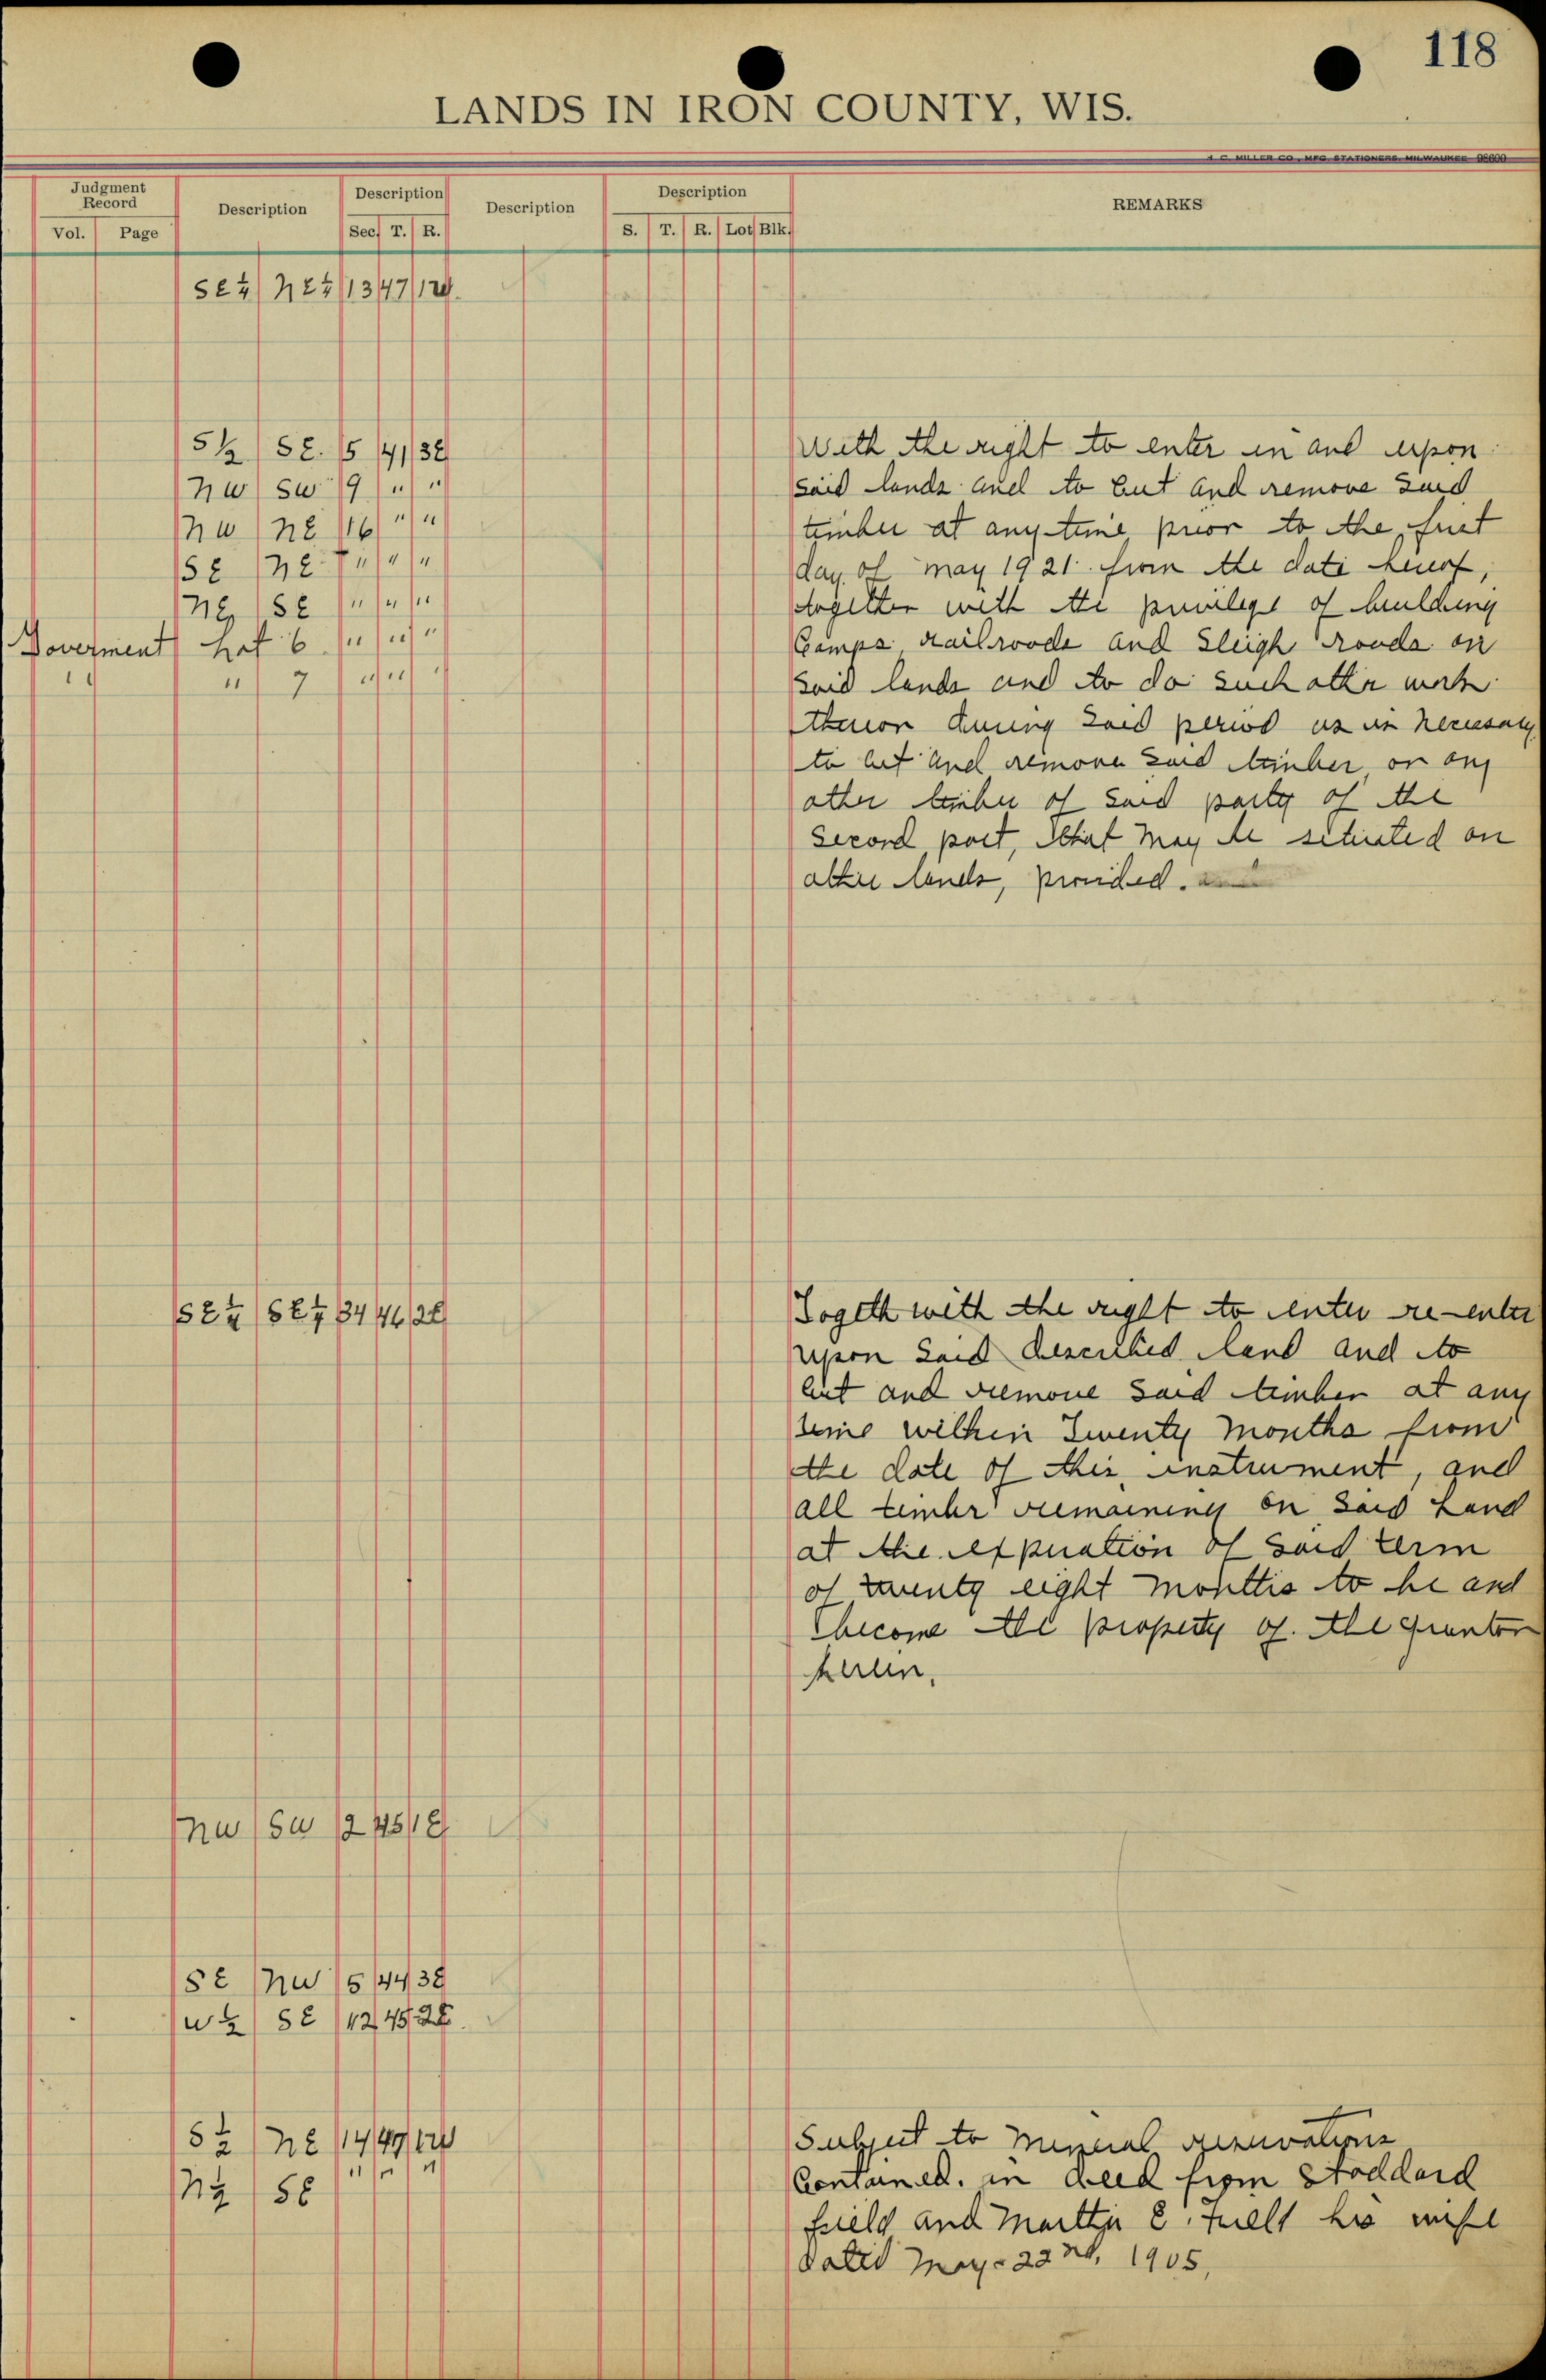 118
LANDS IN IRON COUNTY, WIS.
H. C. MILLER CO., MFG. STATIONERS, MILWAUKEE 98600
Judgment Record
Vol. Page
Description
Description
Sec. T. R.
Description
Description
S. T. R. Lot Blk.
REMARKS
SE¼ NE¼ 13 47 1W.
S½ SE. 5 41 3E
NW SW 9 " "
NW NE 16 " "
SE NE " " "
NE SE " " "
Goverment Lot 6 " " "
" " 7 " " "
With the right to enter in and upon
said lands and to cut and remove said
timber at any time prior to the first
day of May 1921 from the date hereof,
together with the privilege of building
Camps, railroods and Sleigh roods on
said lands and to do such other work
thereon during said period as is necessary
to cut and remove said timber, or any
other timber of said party of the
second part, that may be setuated on
other lands, provided.
SE¼ SE¼ 34 46 2E
Togeth with the right to enter re-enter
upon said described land and to
cut and remove said timber at any
time within Twenty months from
the date of this instrument, and
all timber remaining on said Land
at the expiration of said term
of twenty eight months to be and
become the property of. the grantor
herein.
NW SW 2 45 1E
SE NW 5 44 3E
W½ SE 12 45 2E.
S½ NE 14 47 1W
N½ SE " " "
Subject to mineral reservations
Contained. in deed from Stoddard
field and Martha E. field his wife
Dated May - 22nd, 1905,